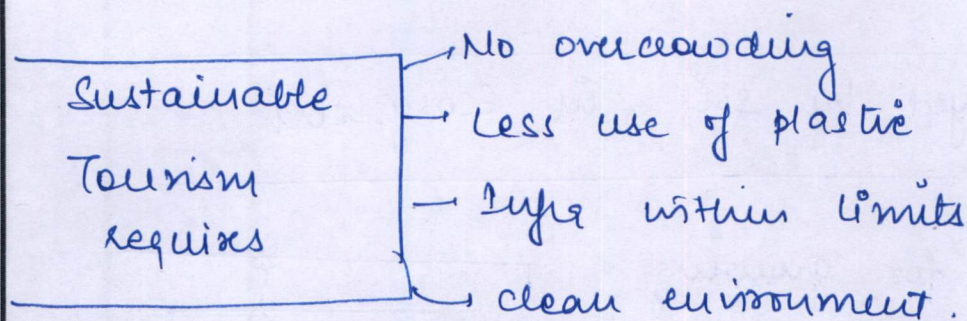 Sustainable
Tourism
requires
No overcrowding
Less use of plastic
Infra within limits
clean environment.